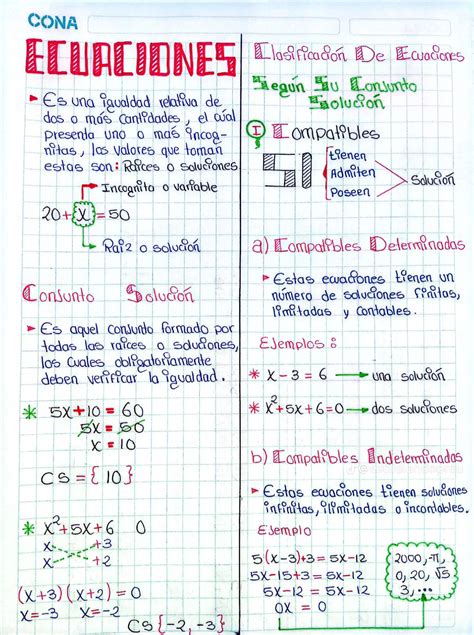 CONA
ECUACIONES
► Es una igualdad relativa de
dos o más cantidades, el cúal
presenta uno o más incog-
nitas, los valores que toman
estas son: Raíces o soluciones
Incognita o variable
20+x=50
Raiz o solución
Conjunto Solución
► Es aquel conjunto formado por
todas las raices o soluciones,
los cuales obligatoriamente
deben verificar la igualdad.
* 5x+10=60
5x=50
x=10
CS={10}
* x²+5x+6 0
x +3
x +2
(x+3)(x+2)=0
x=-3 x=-2
CS{-2,-3}
Clasificación De Ecuaciones
Según Su Conjunto
Solución
I Compatibles
SI
tienen
Admiten
Poseen
Solución
a) Compatibles Determinados
► Estas ecuaciones tienen un
número de soluciones finitas,
limitadas y contables.
Ejemplos:
* x-3=6 → una solución
* x²+5x+6=0 → dos soluciones
b) Compatibles Indeterminados
► Estas ecuaciones tienen soluciones
infinitas, ilimitadas o incontables.
Ejemplo
5(x-3)+3=5x-12
5x-15+3=5x-12
5x-12=5x-12
0x=0
2000,-π,
0,20,√5
3,...